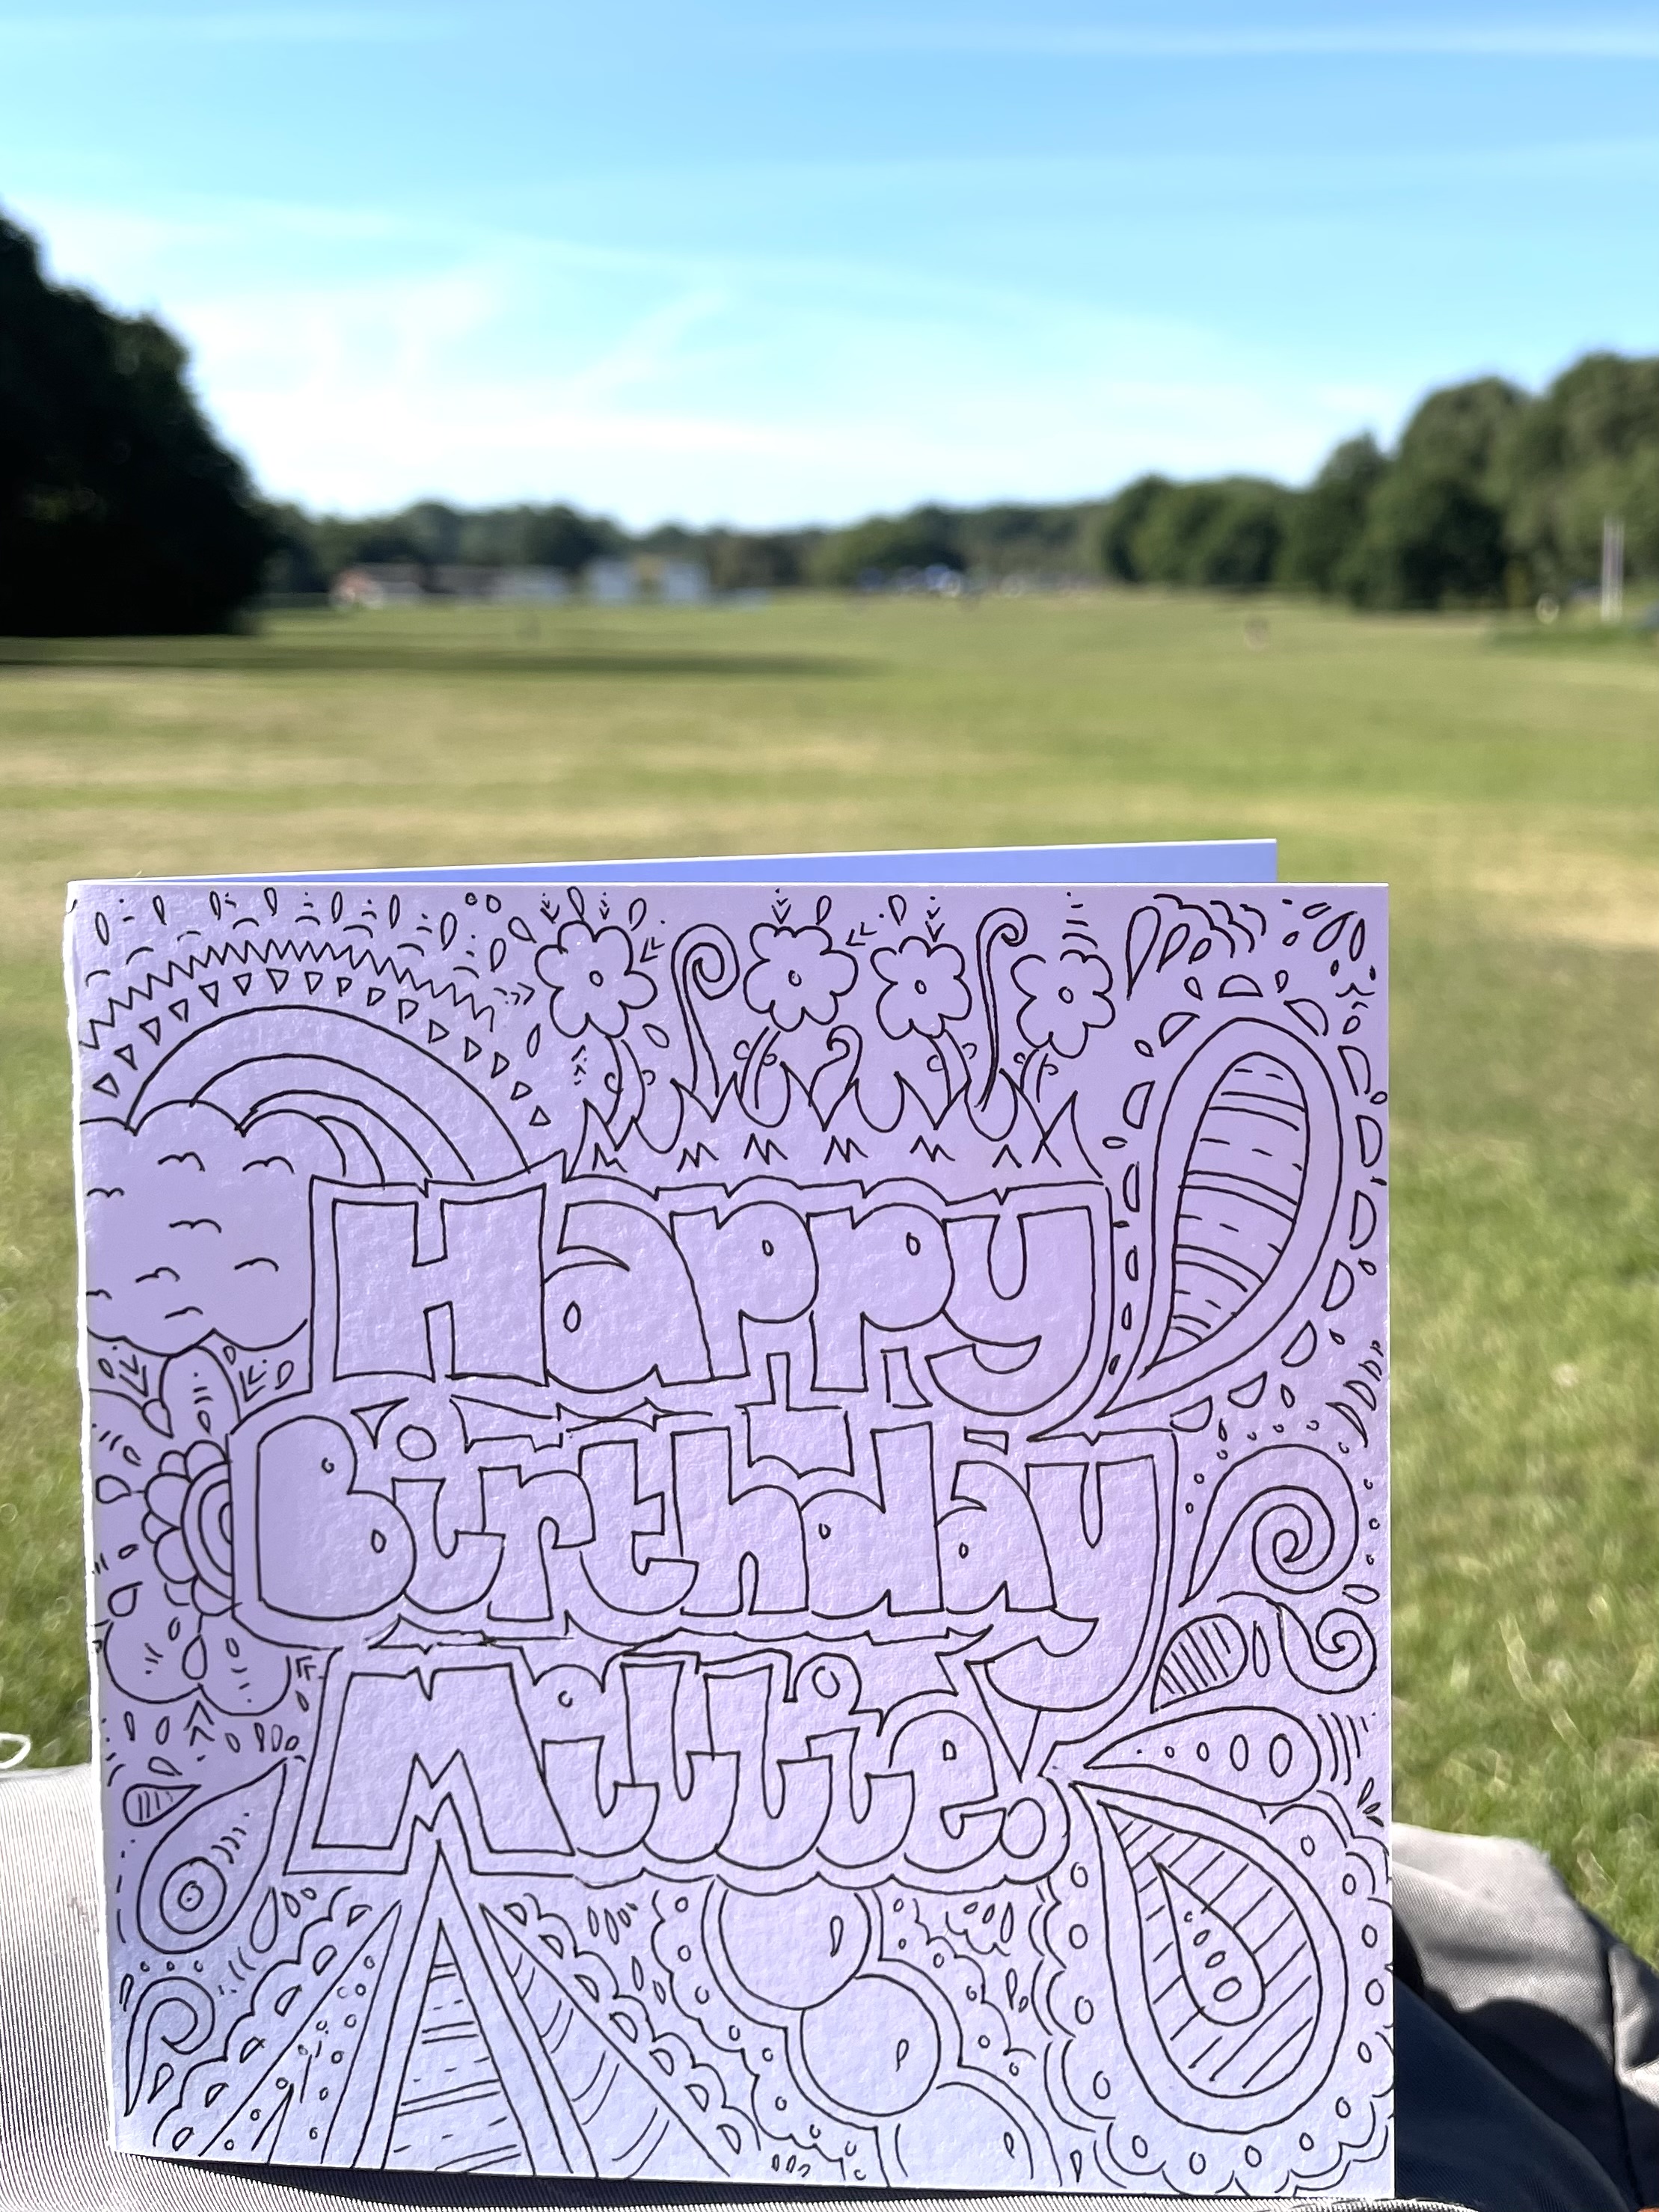 Happy
Birthday
Millie.